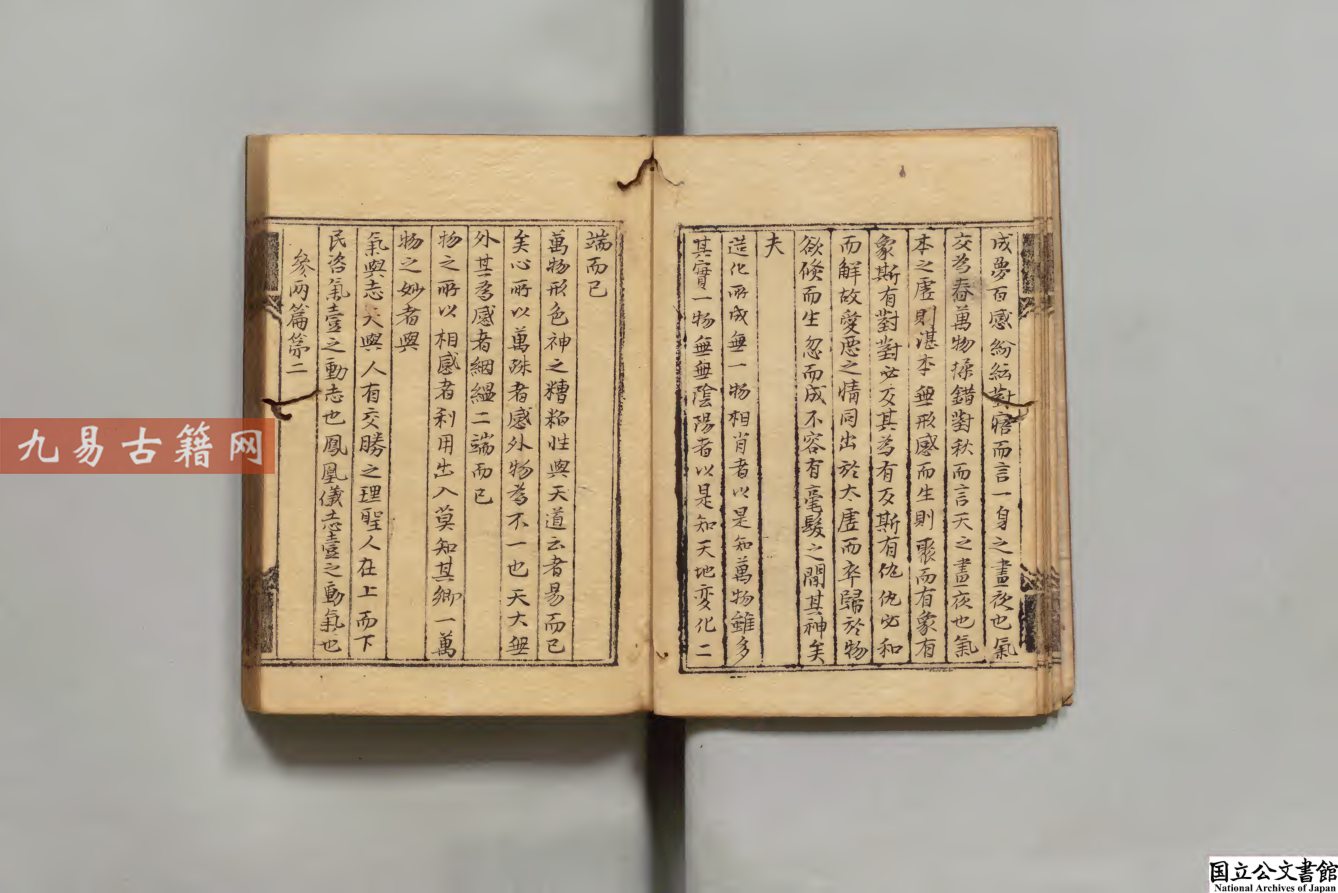 成夢百感紛紜對寤而言一身之晝夜也氣
交爲春萬物揉錯對秋而言天之晝夜也氣
本之虛則湛本無形感而生則聚而有象有
象斯有對對必反其爲有反斯有仇仇必和
而解故愛惡之情同出於太虛而卒歸於物
欲倐而生忽而成不容有毫髮之間其神矣
夫
造化所成無一物相肖者以是知萬物雖多
其實一物無無陰陽者以是知天地変化二
端而已
萬物形色神之糟粕性與天道云者易而已
矣心所以萬殊者感外物爲不一也天大無
外其爲感者絪縕二端而已
物之所以相感者利用出入莫知其鄉一萬
物之妙者與
氣與志天與人有交勝之理聖人在上而下
民咨氣壹之動志也鳳凰儀志壹之動氣也
參兩篇第二
九易古籍网
国立公文書館
National Archives of Japan